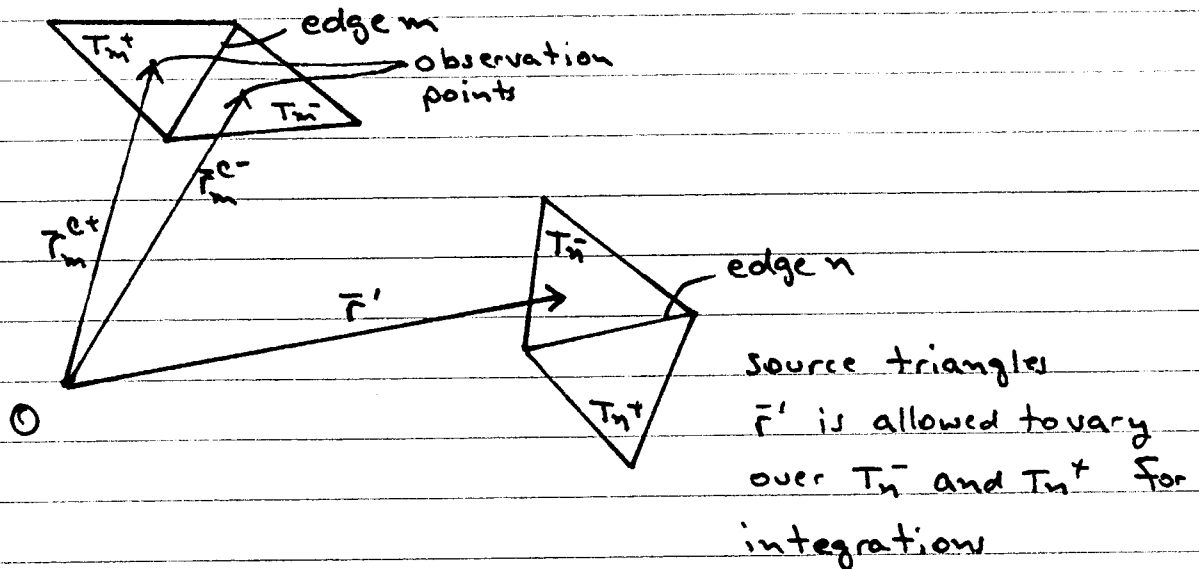 edge m
Tm+
observation
points
Tm-
r̄m^c-
r̄m^c+
Tn-
edge n
r̄'
source triangles
O
Tn+
r̄' is allowed to vary
over Tn- and Tn+ for
integrations